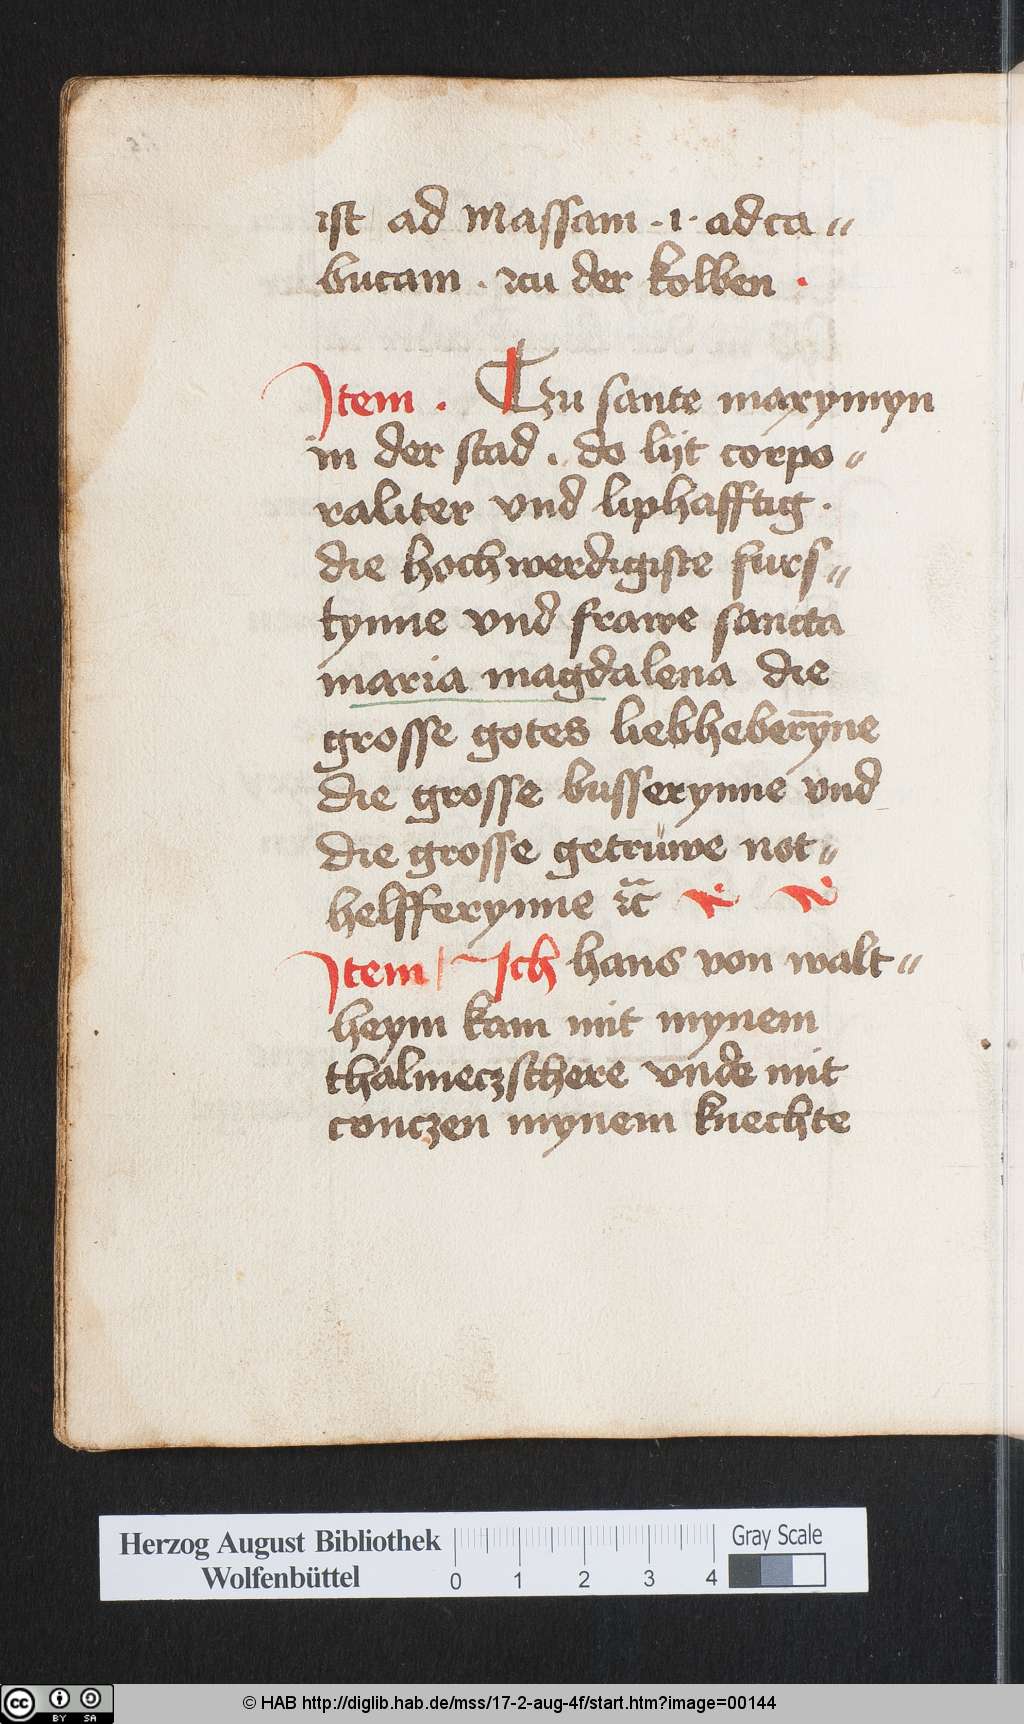 ist ad massam · i · ad ca〃
bucam · zcu der kolben ·
Item · Tzu sante maxymyn
in der stad · do lijt corpo〃
raliter vnd liphafftig ·
die hochwerdigiste furs〃
tynne vnd frawe sancta
maria magdalena die
grosse gotes liebheber̄yne
die grosse busserynne vnd
die grosse getrüwe not〃
helfferynne ꝛc̄
Item Ich hans von walt〃
heym kam mit mynem
thalmeczschere vnde mit
conczen mynem knechte
Herzog August Bibliothek
Wolfenbüttel
0 1 2 3 4
Gray Scale
cc BY SA
© HAB http://diglib.hab.de/mss/17-2-aug-4f/start.htm?image=00144